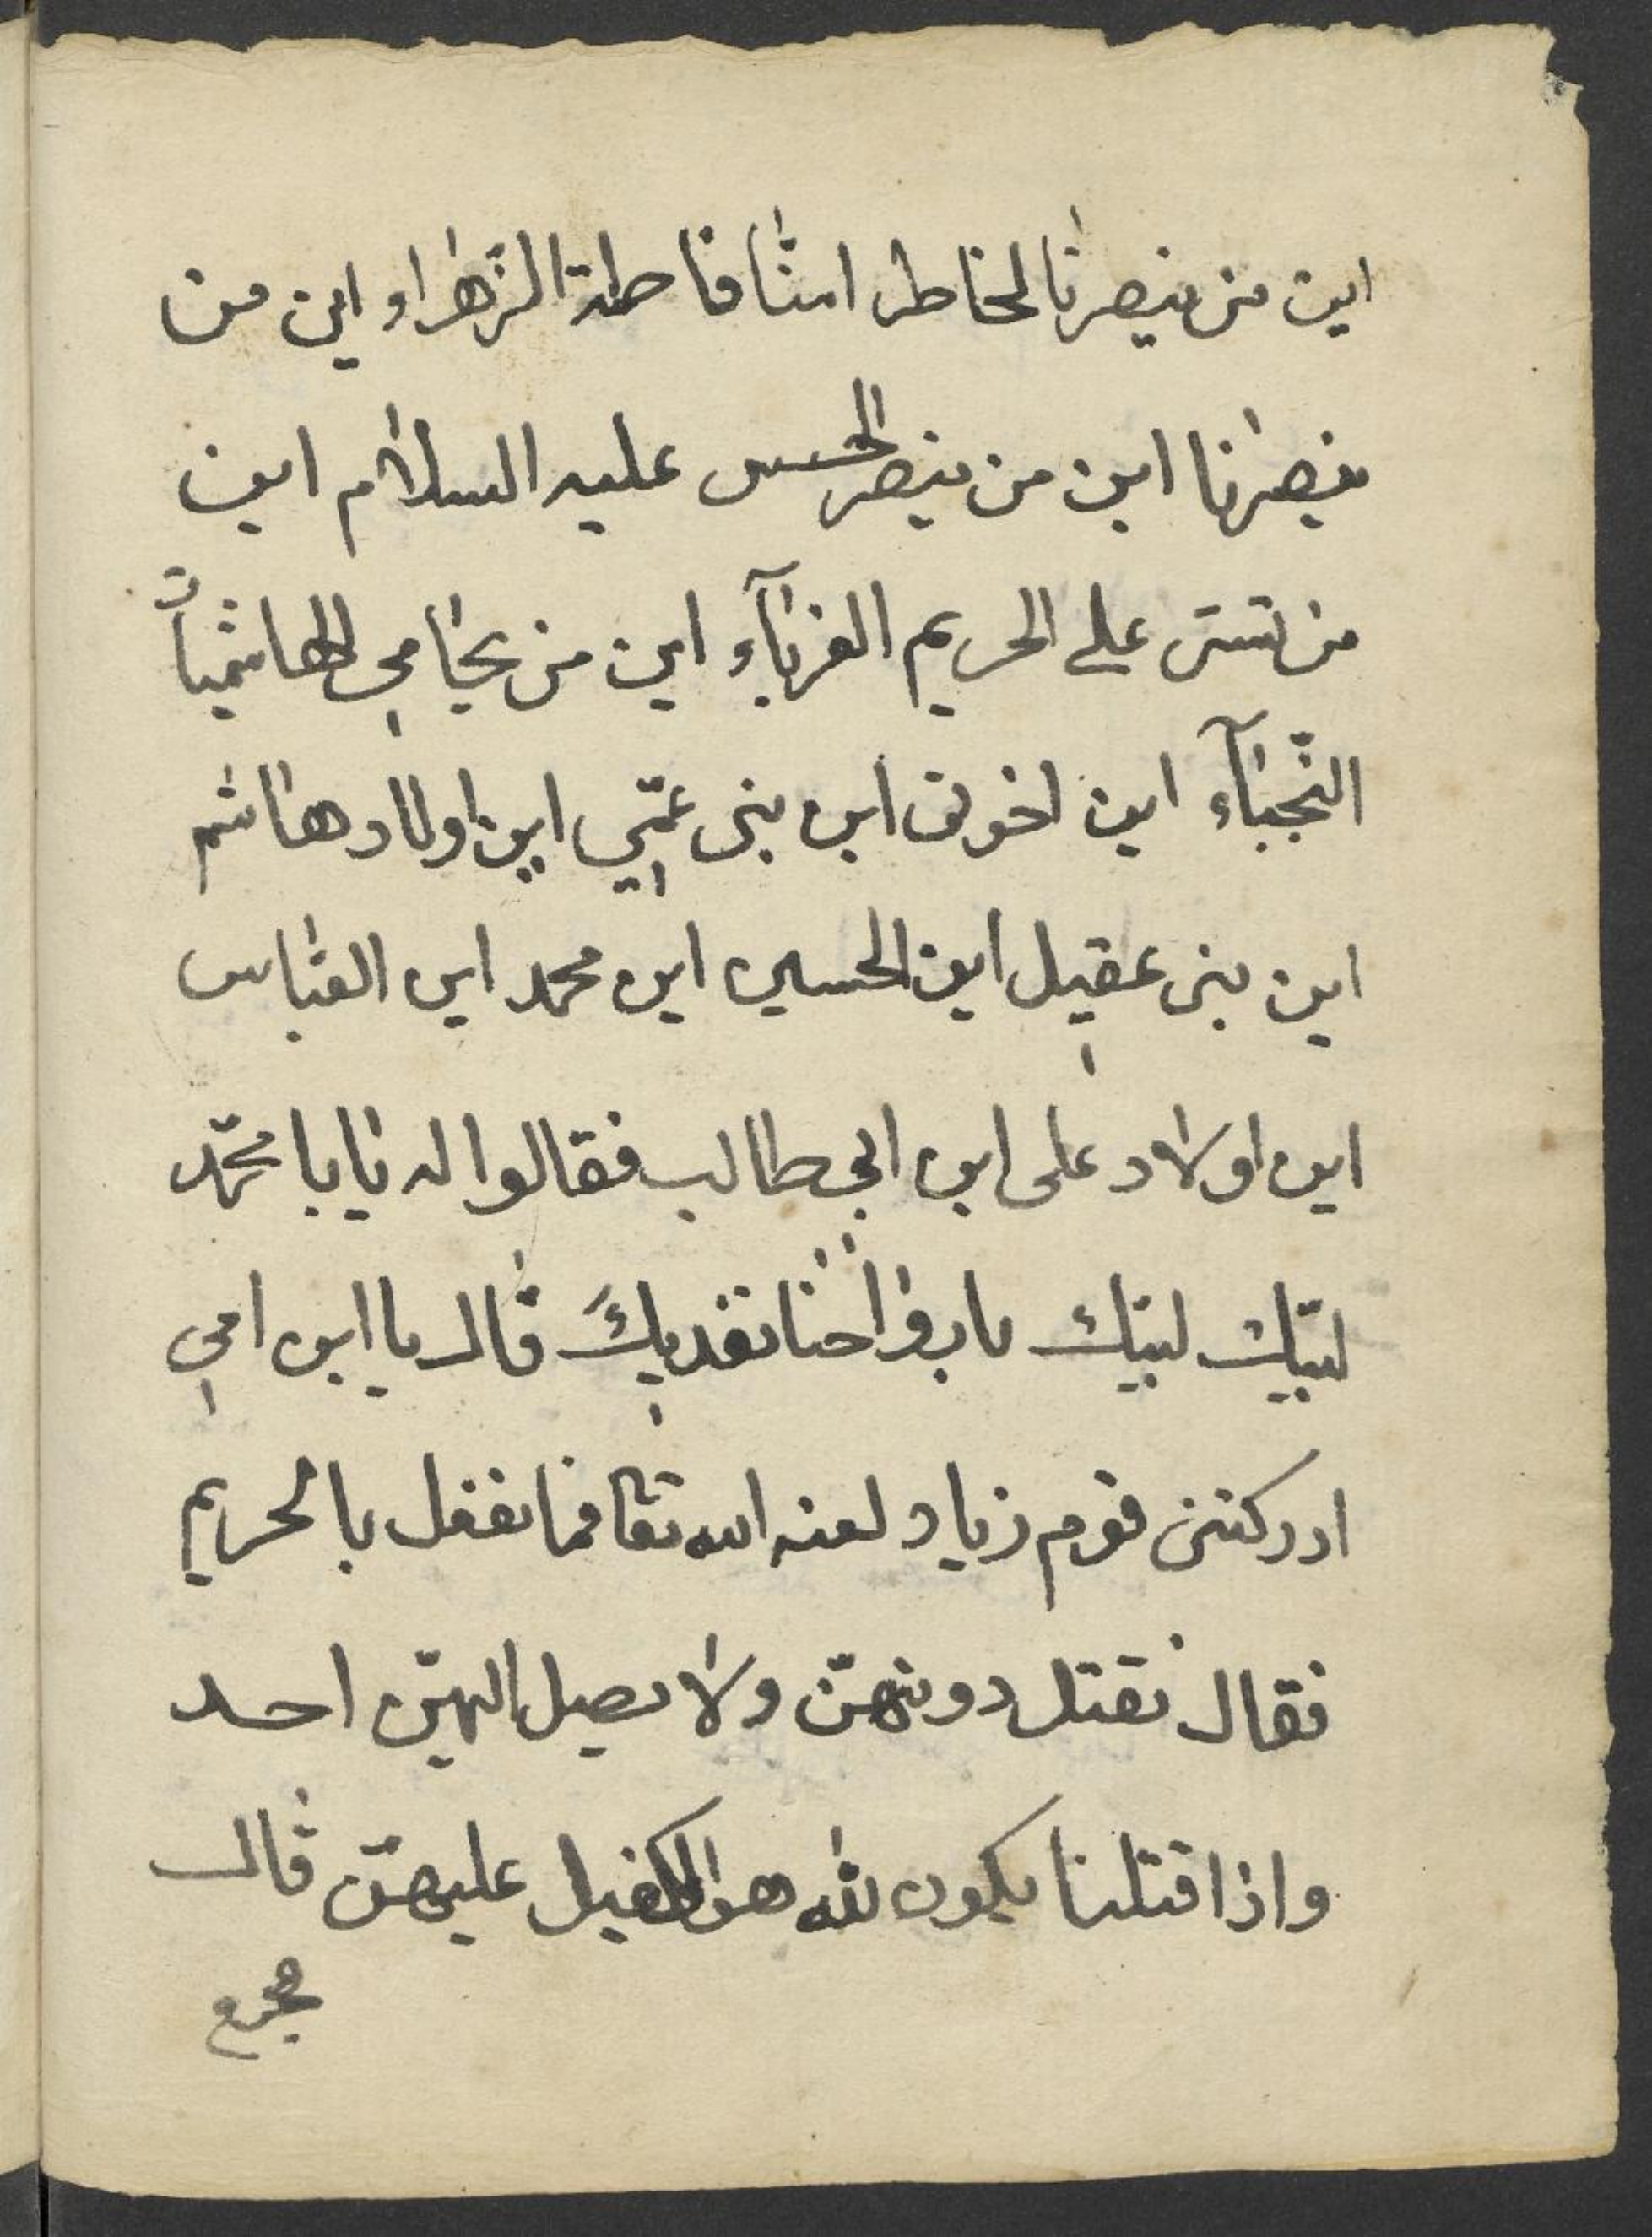 اين من ينصرنا لخاطر امنا فاطمة الزهراء و اين من
ينصرنا اين من ينصر الحسين عليه السلام اين
من تستر على الحريم الغرباء اين من يحامي الهاشميات
النّجباء اين اخوتى اين بنى عمّي اين اولاد هاشم
اين بنى عقيل اين الحسين اين محمد اين العباس
اين اولاد على ابن ابى طالب فقالوا له يا با محمّد
لبّيك لبيك بارواحنا نفديك قال يا ابن امي
ادركتنى قوم زياد لعنه الله تعا فما نفعل بالحريم
فقال نقتل دونهنّ ولا يصل اليهنّ احد
واذا قتلنا يكون لله هو الكفيل عليهنّ قال